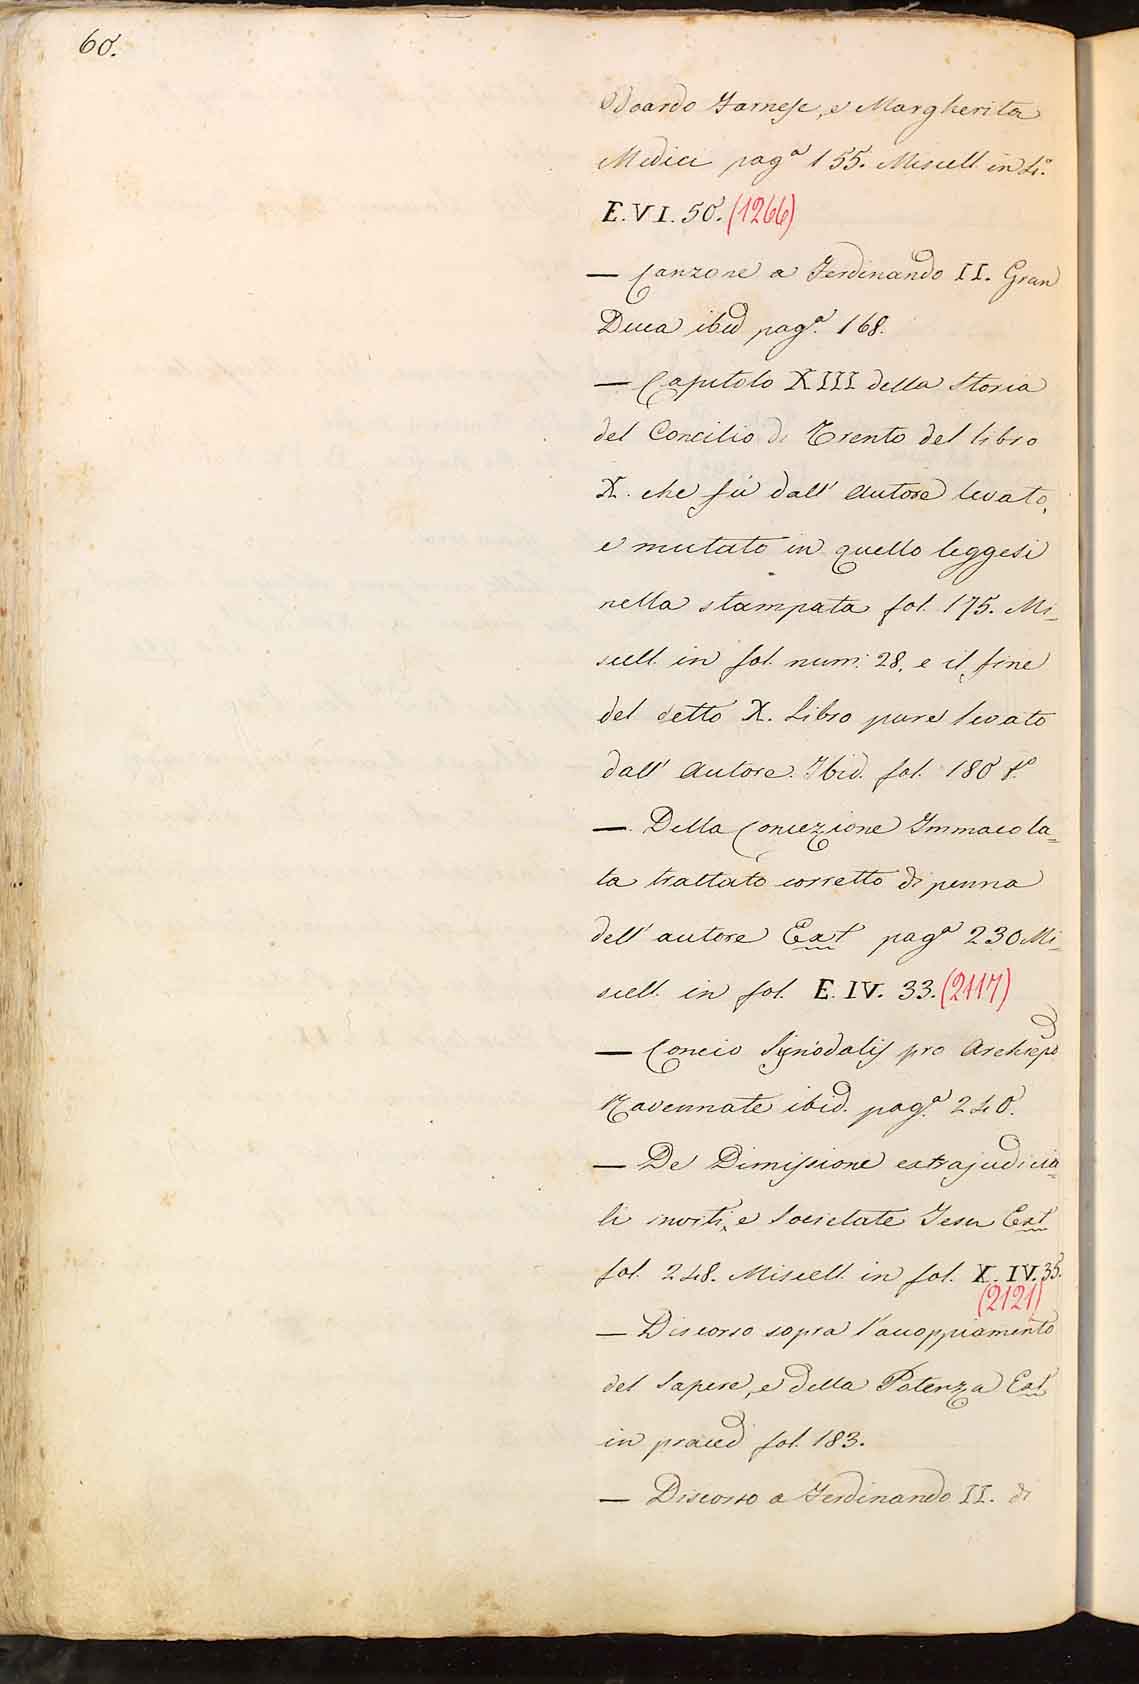 60.
Odoardo Farnese, e Margherita
Medici pagª 155. Miscell. in 4º.
E. VI. 50. (1266)
— Canzone a Ferdinando II. Gran
Duca ibid pagª. 168.
— Capitolo XIII della Storia
del Concilio di Trento del libro
X. che fù dall' Autore levato,
e mutato in quello leggesi
nella stampata fol. 175. Mi-
scell. in fol. num. 28. e il fine
del detto X. Libro pure levato
dall' Autore. Ibid. fol. 180 tº
— Della Concezione Immacola=
ta trattato corretto di penna
dell' autore Ext pagª 230 Mi-
scell. in fol. E. IV. 33. (2117)
— Concio Synodalis pro Archiepo
Ravennate ibid. pag.ª 240.
— De Dimissione extrajudicia=
li e Societate Iesu Ext
fol. 248. Miscell. in fol. X. IV. 35.
(2121)
— Discorso sopra l'accoppiamento
del Sapere, e della Potenza Ext
in praced fol. 183.
— Discorso a Ferdinando II. di